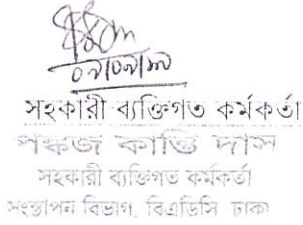 সহকারী ব্যক্তিগত কর্মকর্তা
পঙ্কজ কান্তি দাস
সহকারী ব্যক্তিগত কর্মকর্তা
সংস্থাপন বিভাগ, বিএডিসি ঢাকা